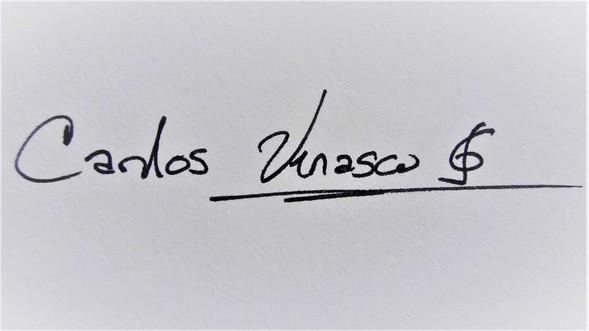 Carlos Venasco